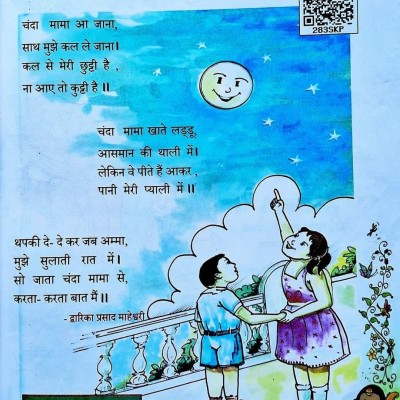 283SKP
चंदा मामा आ जाना,
साथ मुझे कल ले जाना।
कल से मेरी छुट्टी है ,
ना आए तो कुट्टी है ॥
चंदा मामा खाते लड्डू,
आसमान की थाली में।
लेकिन वे पीते हैं आकर ,
पानी मेरी प्याली में ॥
थपकी दे- दे कर जब अम्मा,
मुझे सुलाती रात में।
सो जाता चंदा मामा से,
करता- करता बात मैं ॥
- द्वारिका प्रसाद माहेश्वरी